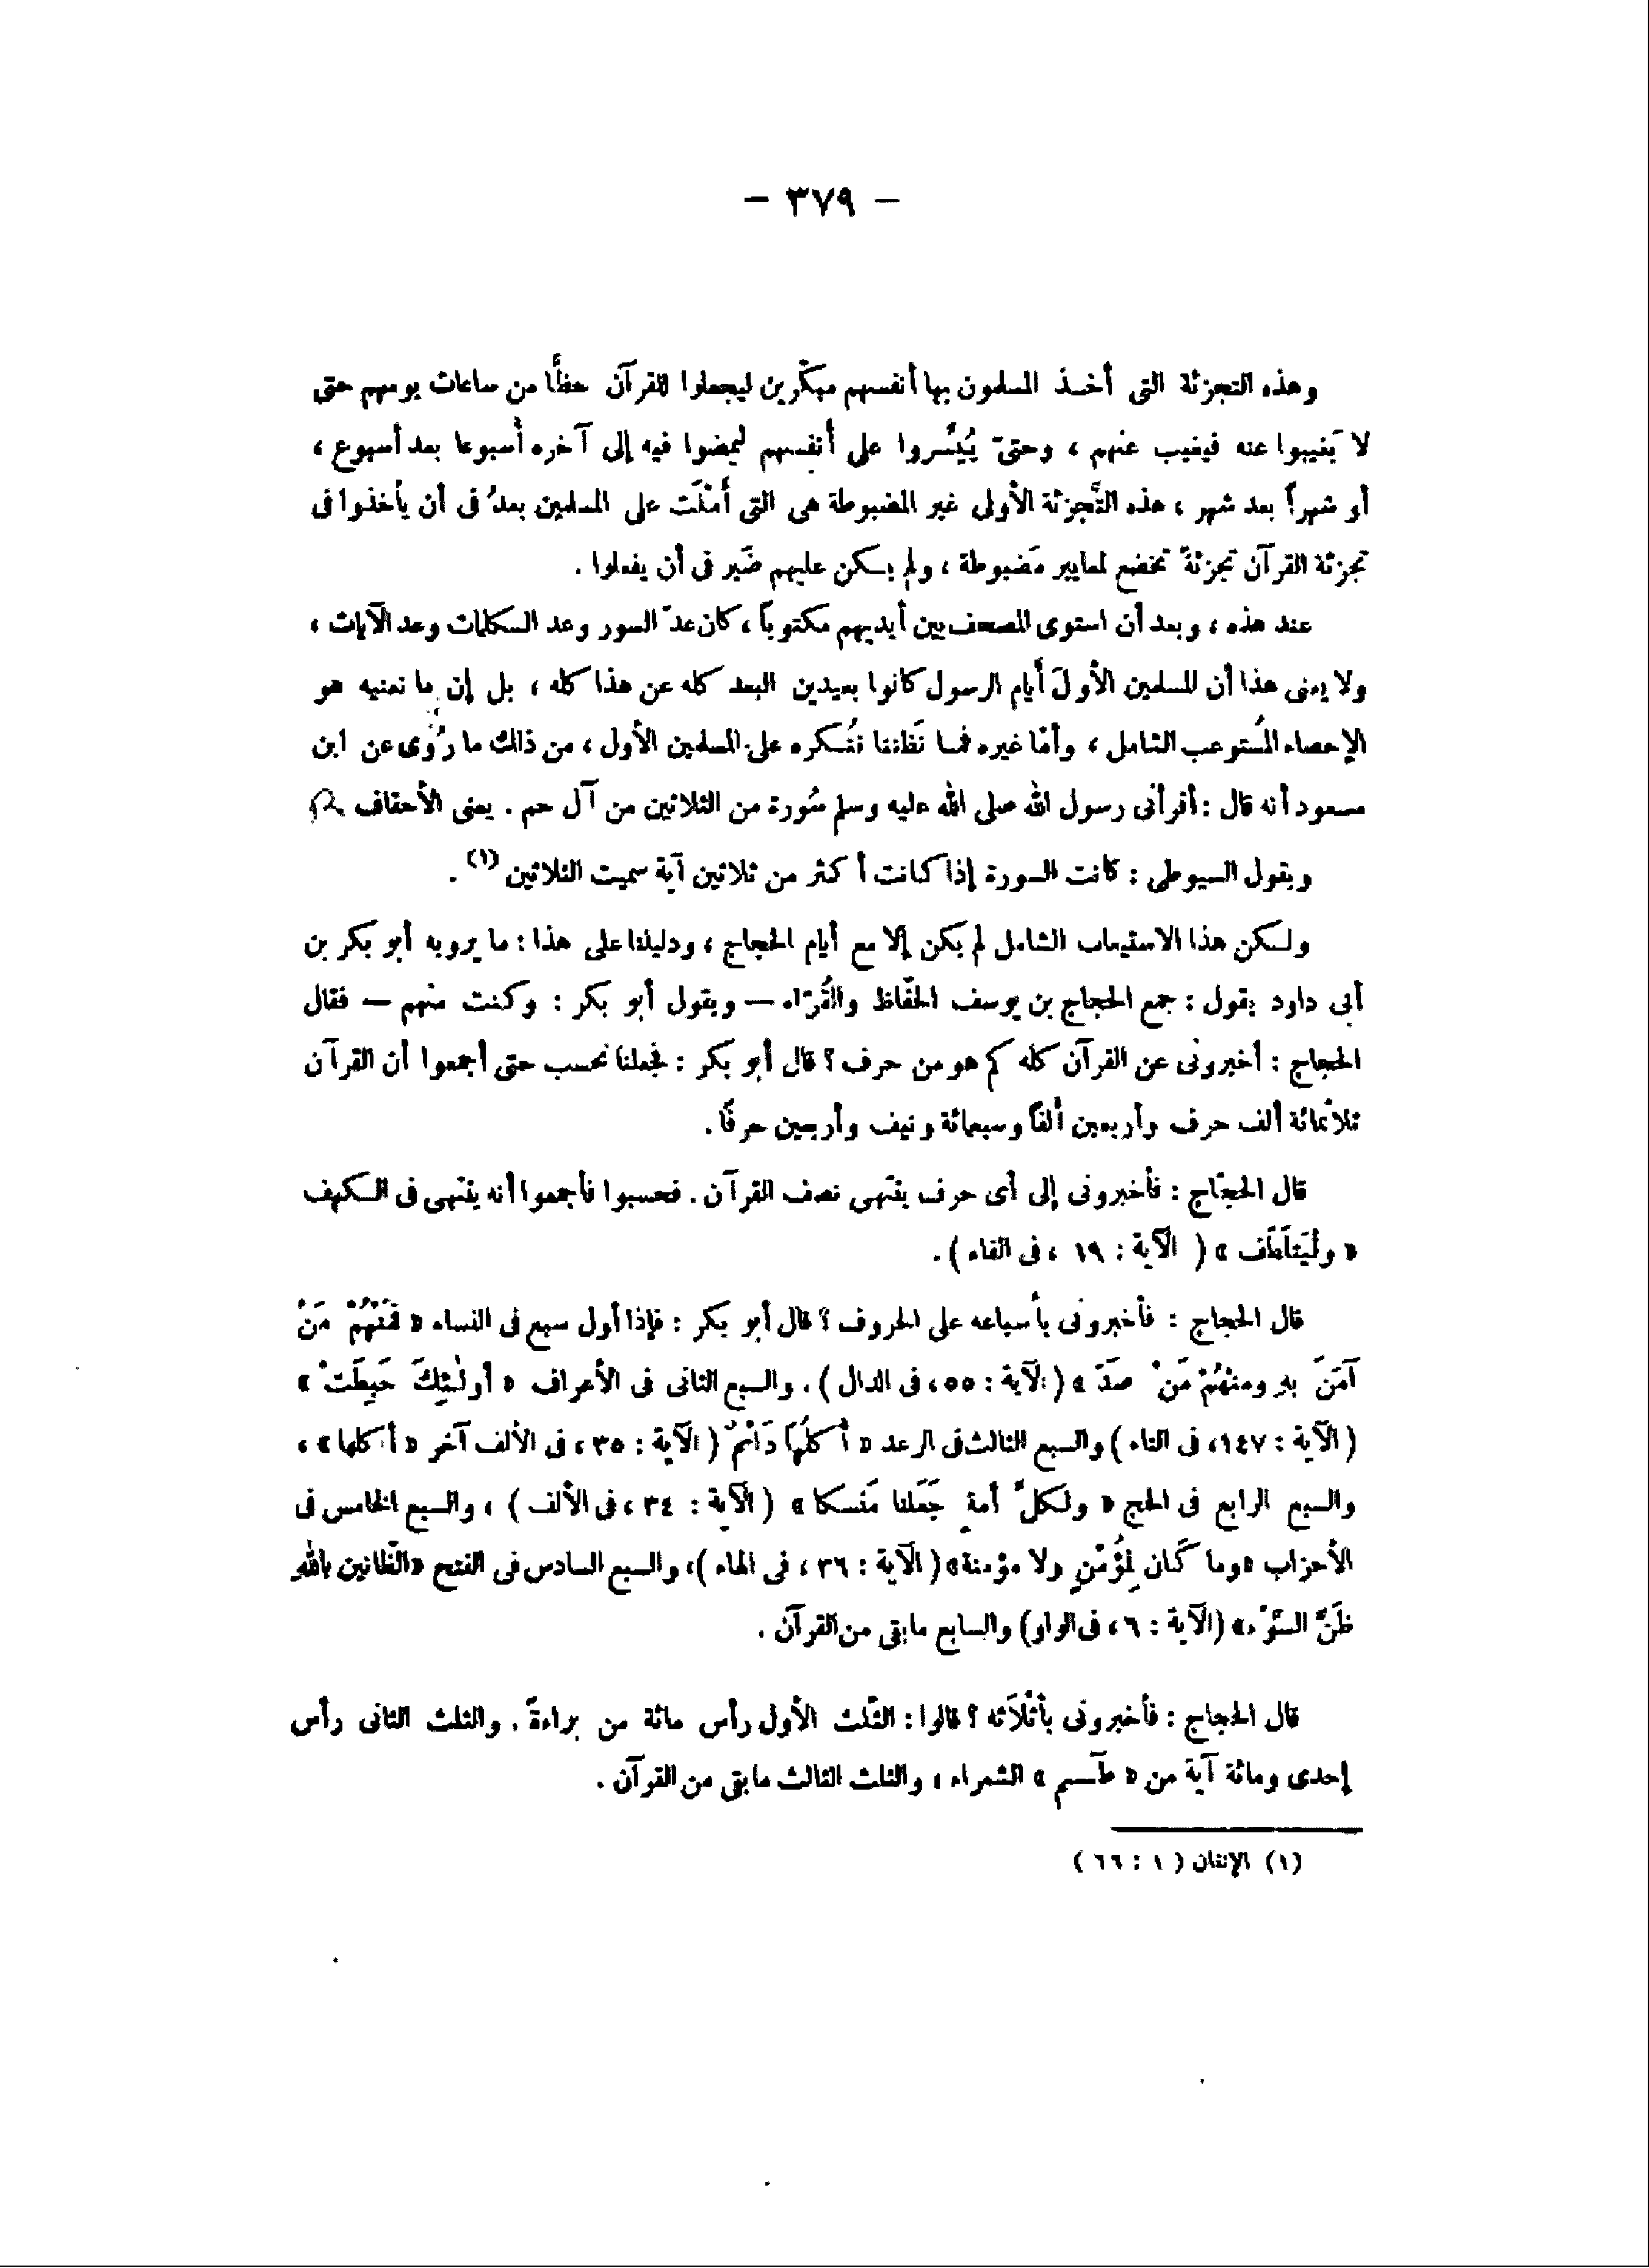 — ٣٧٩ —
وهذه التجزئة التى أخـذ المسلمون بها أنفسهم مبكّرين ليجعلوا للقرآن حظًّا من ساعات يومهم حتى
لا يَغيبوا عنه فيغيب عنهم ، وحتىّ يُيَسِّروا على أنفسهم ليمضوا فيه إلى آخره أسبوعا بعد أسبوع ،
أو شهراً بعد شهر ، هذه التَّجزئة الأولى غير المضبوطة هى التى أَمْلَت على المسلمين بعدُ فى أن يأخذوا فى
تجزئة القرآن تجزئةً تخضع لمعايير مَضبوطة ، ولم يـكن عليهم ضَير فى أن يفعلوا .
عند هذه ، وبعد أن استوى المصحف بين أيديهم مكتوباً ، كان عدّ السور وعد الـكلمات وعد الآيات ،
ولا يعنى هذا أن المسلمين الأُولَ أيام الرسول كانوا بعيدين البعد كله عن هذا كله ، بل إن ما نعنيه هو
الإحصاء المُستوعب الشامل ، وأمّا غيره فمـا نَظننا نُنـكره على المسلمين الأول ، من ذلك ما رُوى عن ابن
مسعود أنه قال : أقرأنى رسول الله صلى الله عليه وسلم سُورة من الثلاثين من آل حم . يعنى الأحقاف
ويقول السيوطى : كانت السورة إذا كانت أكثر من ثلاثين آية سميت الثلاثين (١) .
ولـكن هذا الاستيعاب الشامل لم يكن إلا مع أيام الحجاج ، ودليلنا على هذا : ما يرويه أبو بكر بن
أبى داود يقول : جمع الحجاج بن يوسف الحفّاظ والقُرّاء — ويقول أبو بكر : وكنت منهم — فقال
الحجاج : أخبرونى عن القرآن كله كم هو من حرف ؟ قال أبو بكر : فجعلنا نحسب حتى أجمعوا أن القرآن
ثلاثمائة ألف حرف وأربعين ألفاً وسبعمائة ونيف وأربعين حرفًا .
قال الحجّاج : فأخبرونى إلى أى حرف ينتهى نصف القرآن . فحسبوا فأجمعوا أنه ينتهى فى الـكهف
« ولْيَتَلَطَّف » ( الآية : ١٩ ، فى الفاء ) .
قال الحجاج : فأخبرونى بأسباعه على الحروف ؟ قال أبو بكر : فإذا أول سبع فى النساء « فَمنْهُمْ مَنْ
آمَنَ بهِ ومنْهُمْ مَنْ صَدّ » ( الآية : ٥٥ ، فى الدال ) . والسبع الثانى فى الأعراف « أولٰئِكَ حَبِطَتْ »
( الآية : ١٤٧ ، فى التاء ) والسبع الثالث فى الرعد « أُكلُها دَائمٌ ( الآية : ٣٥ ، فى الألف آخر « أكلها » ،
والسبع الرابع فى الحج « ولـكلِّ أمةٍ جَعَلنا مَنسكا » ( الآية : ٣٤ ، فى الألف ) ، والسبع الخامس فى
الأحزاب «وما كَان لِمُؤمْنٍ ولا مؤمنة» ( الآية : ٣٦ ، فى الهاء )، والسبع السادس فى الفتح «الظّانين باللهِ
ظَنَّ السَّوْء» (الآية : ٦ ، فى الواو) والسابع مابقى من القرآن .
قال الحجاج : فأخبرونى بأَثْلاَثه ؟ قالوا : الثّلث الأول رأس مائة من براءة . والثلث الثانى رأس
إحدى ومائة آية من « طٓـسم » الشعراء ، والثلث الثالث مابقى من القرآن .
(١) الإتقان ( ١ : ٦٦ )